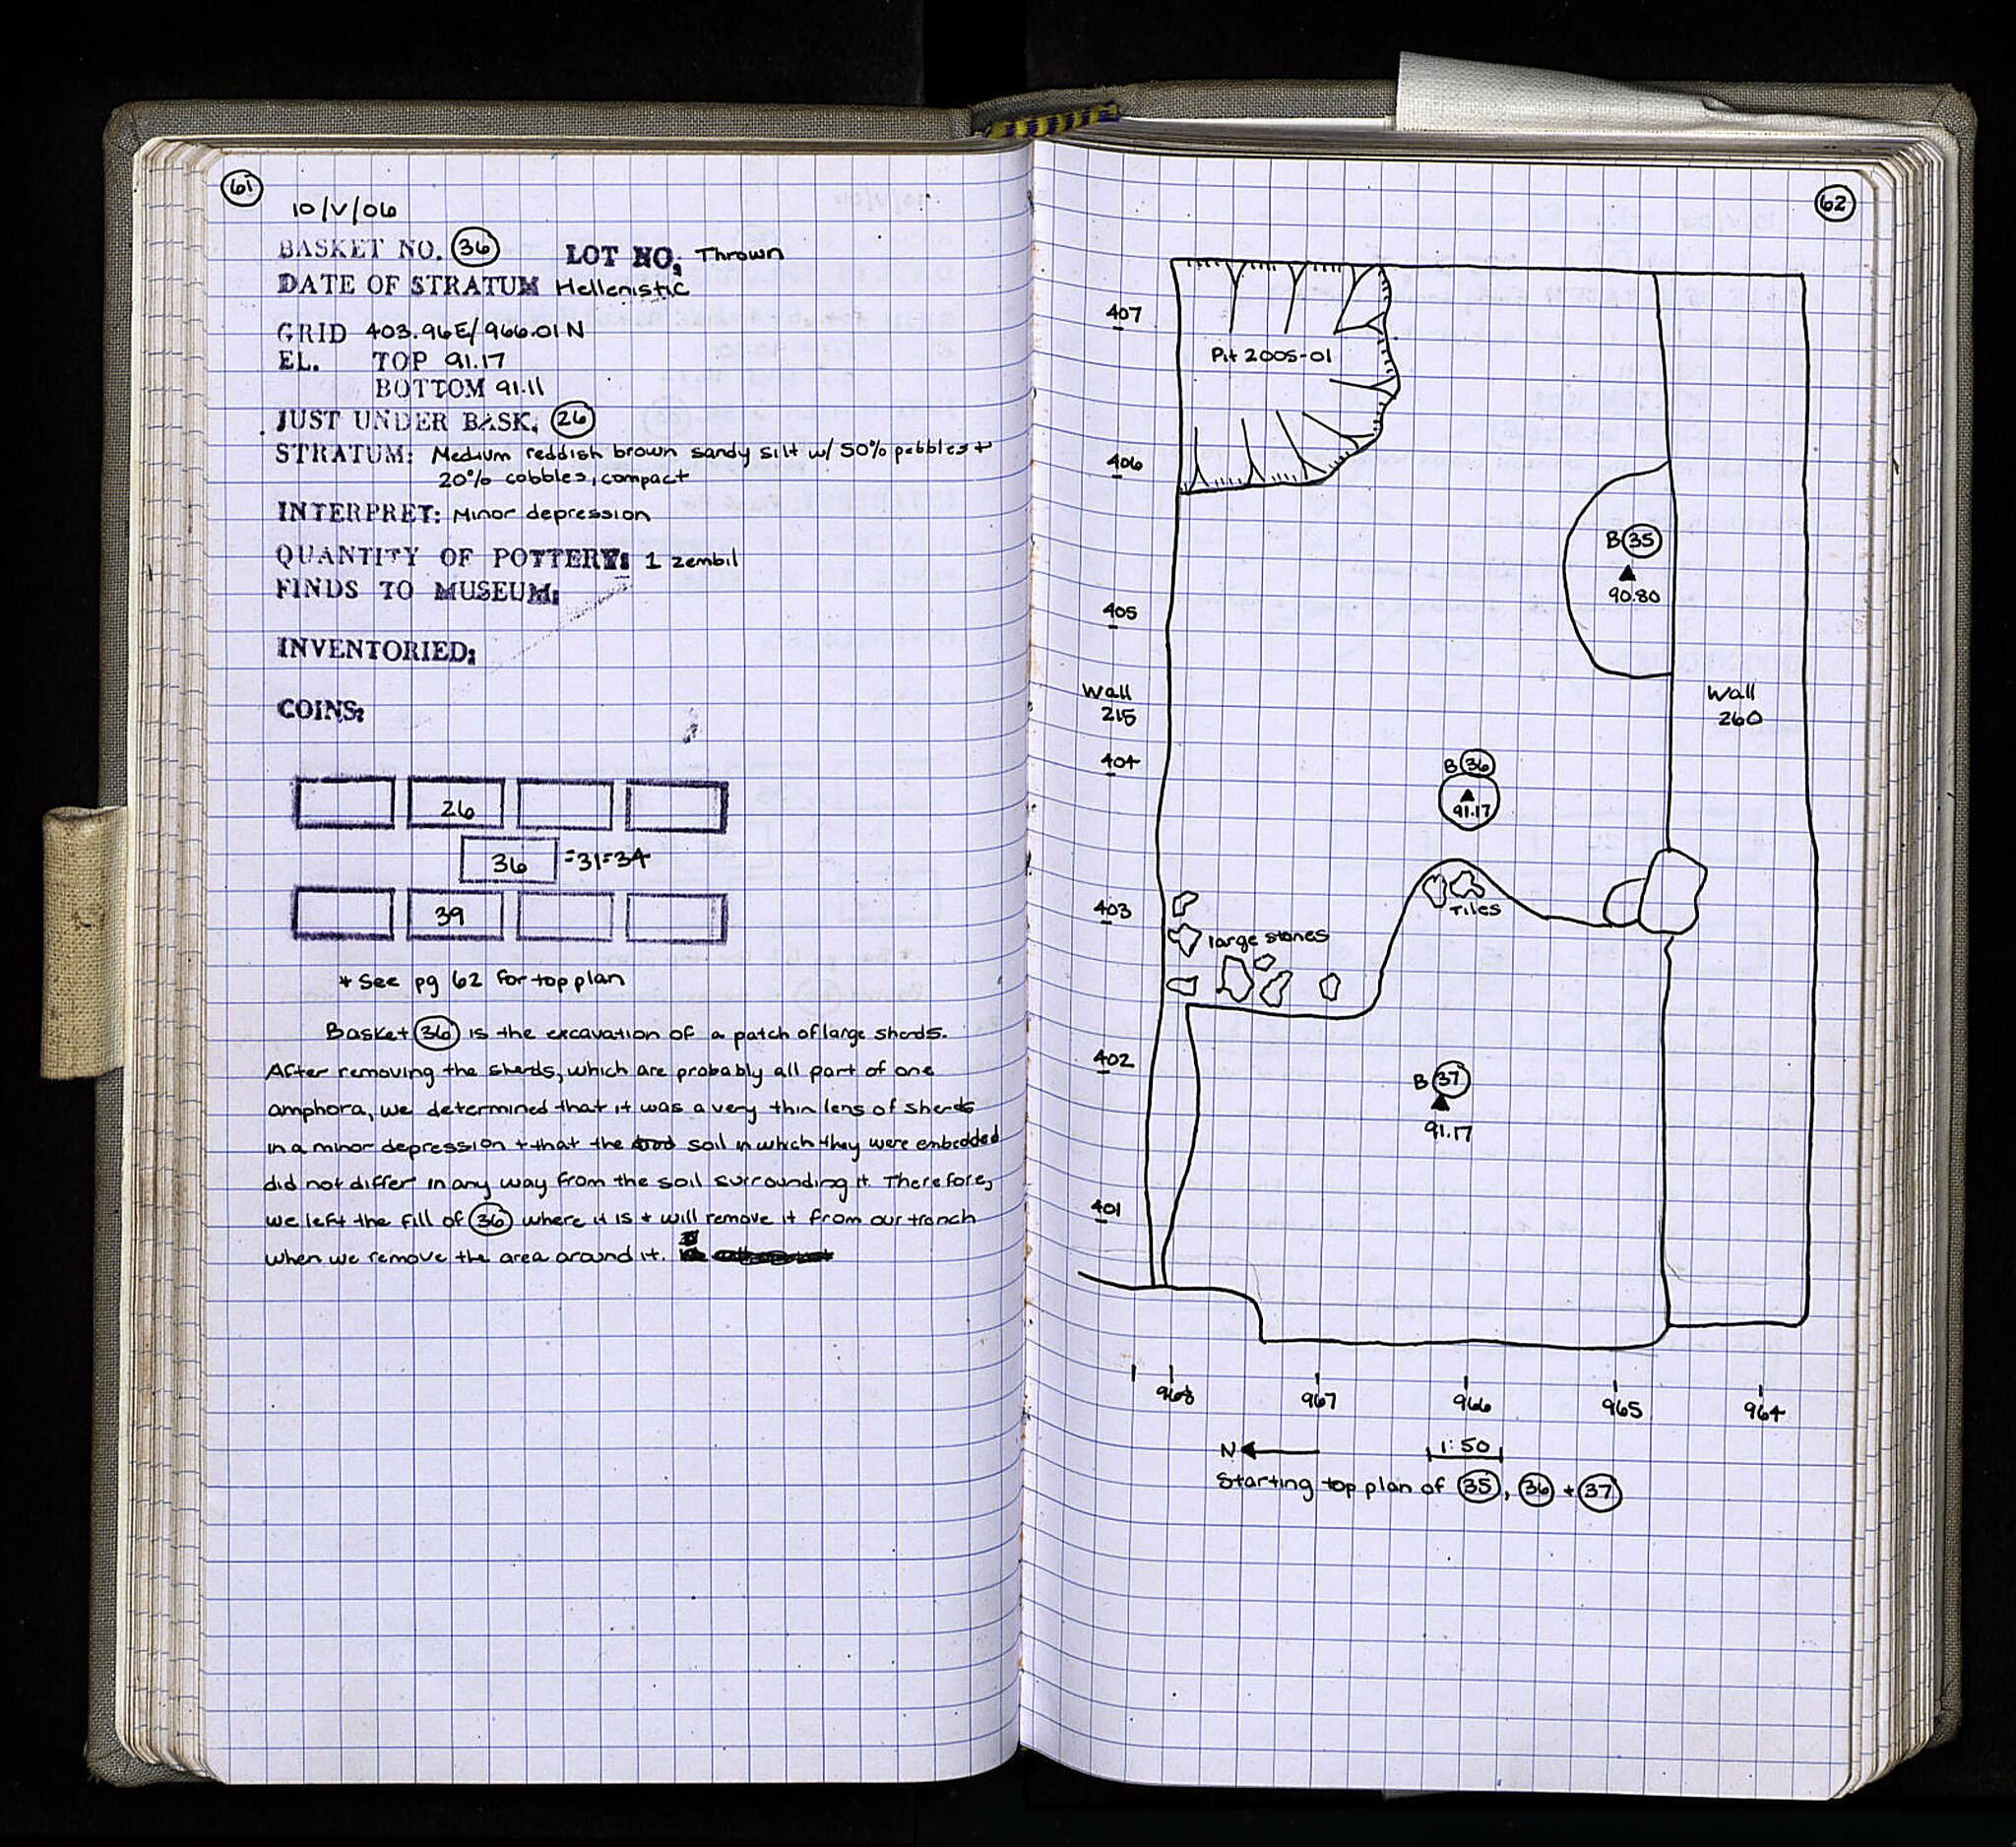 61
10/V/06
BASKET NO. 36 LOT NO. Thrown
DATE OF STRATUM Hellenistic
GRID 403.96E/966.01N
EL. TOP 91.17
BOTTOM 91.11
JUST UNDER BASK. 26
STRATUM: Medium reddish brown sandy silt w/ 50% pebbles +
20% cobbles, compact
INTERPRET: Minor depression
QUANTITY OF POTTERY: 1 zembil
FINDS TO MUSEUM:
INVENTORIED:
COINS:
26
36 =31=34
39
* See pg 62 for top plan
Basket 36 is the excavation of a patch of large sherds.
After removing the sherds, which are probably all part of one
amphora, we determined that it was a very thin lens of sherds
in a minor depression + that the soil in which they were embedded
did not differ in any way from the soil surrounding it. Therefore,
we left the fill of 36 where it is + will remove it from our trench
when we remove the area around it.
62
407
Pit 2005-01
406
B 35
90.80
405
Wall
215
Wall
260
404
B 36
91.17
403
Tiles
large stones
402
B 37
91.17
401
968 967 966 965 964
N 1:50
Starting top plan of 35, 36 + 37